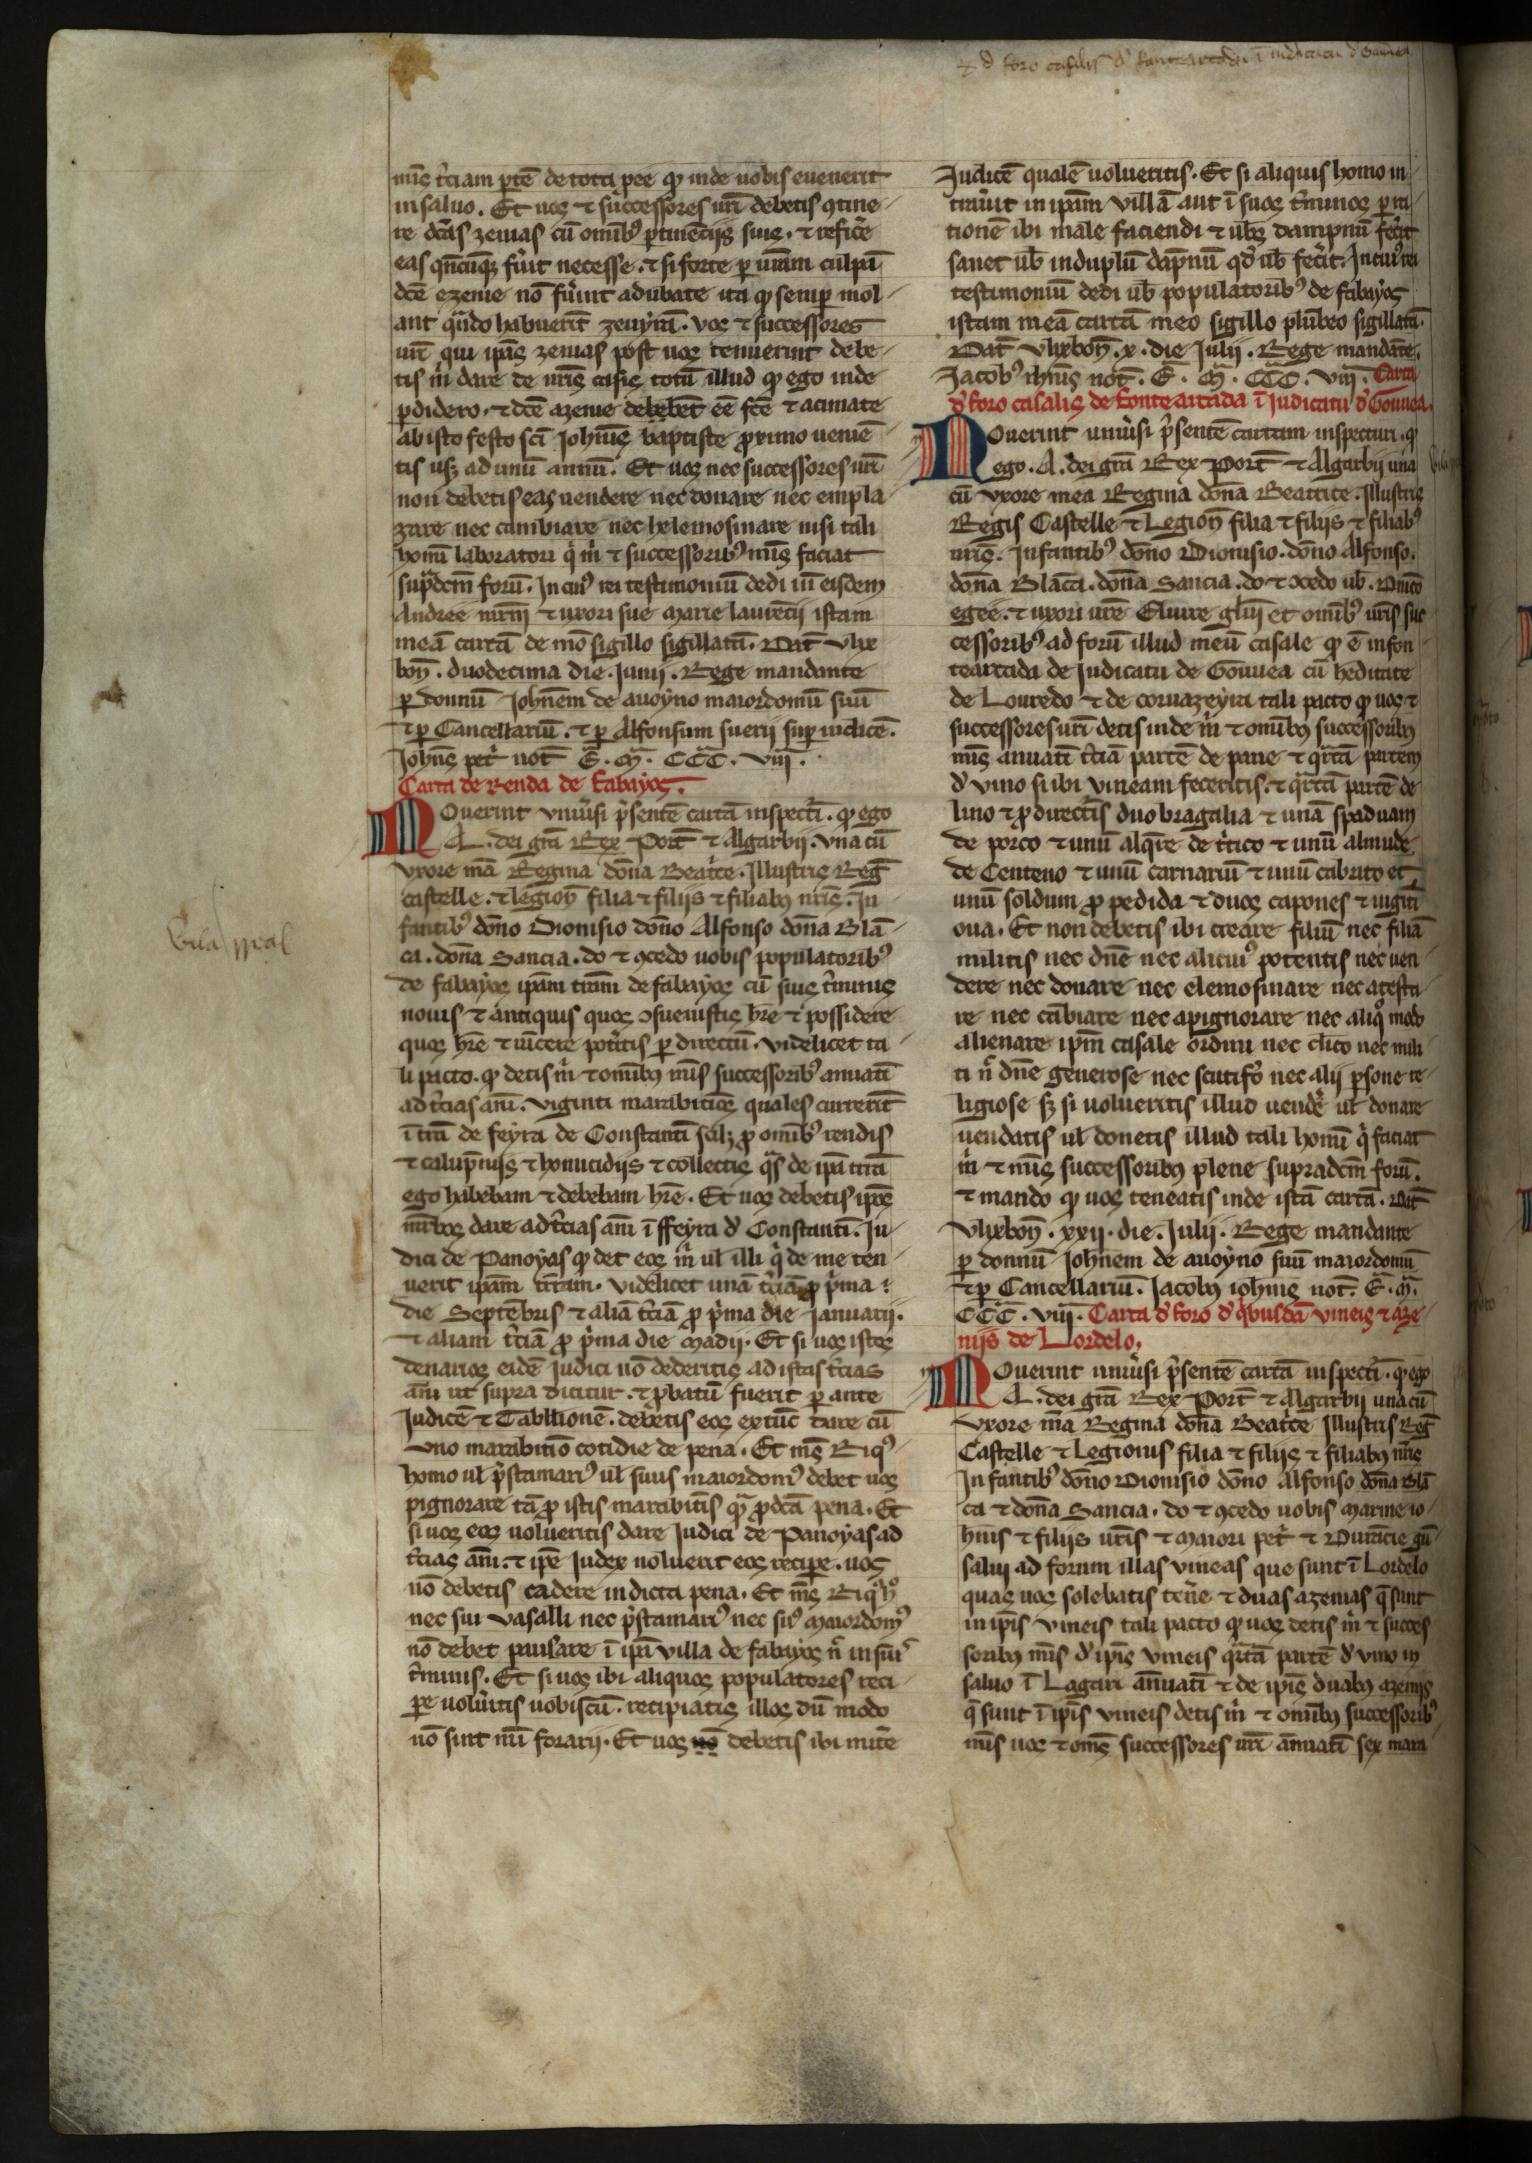 mīs t̄ciam p̄tē de toto pee q̨ inde uobis euenerit
in saluo. Et uos ⁊ successores ur̄i debetis ɔtine-
re dc̄as zenias cū om̄ibꝰ ꝑtinēcijs suis. ⁊ refic̄e
eas qn̄cūqꝫ fūit necesse. ⁊ si forte ꝑ ur̄am culpā
dc̄e ezenie nō fūint adubate ita q̨ semꝑ mol-
ant qn̄do habuerīt zeuyrā. uos ⁊ successores
ur̄i qui ip̄as zenias post uos tenuerint debe-
tis m̄ dare de ur̄is casis totū illud q̨ ego inde
ꝑdidero. ⁊ dc̄e azenie debēt eē fc̄e ⁊ acimate
ab isto festo sc̄i Joh̄nis baptiste ꝓximo ueniē-
tis usqꝫ ad unū annū. Et uos nec successores ur̄i
non debetis eas uendere nec donare nec empla-
zare nec cambiare nec helemosinare nisi tali
homī laboratori q̄ m̄ ⁊ successoribꝰ meīs faciat
sup̄dcm̄ forū. In cuiꝰ rei testimoniū dedi iñ eisdem
Andree mr̄nj ⁊ uxori sue Marie laurēcij istam
meā cartā de mō sigillo sigillatā. Dat̄ Vlix-
bon̄. duodecima die. Junij. Rege mandante
ꝑ donnū Joh̄nem de auoyno maiordomū suū
⁊ ꝑ Cancellariū. ⁊ ꝑ Alfonsum suerij suꝑ iudicē.
Joh̄ns pet̄ not̄ Ē. M̄. CCC. viij.
Carta de renda de fabayos.
Nouerint vniūsi p̄sentē cartā inspectī. q̨ ego
A. dei gr̄a Rex Port̄ ⁊ Algarbij. vna cū
vxore mā Regina dōna Beat̄ce. Illustris Reḡ
castelle. ⁊ legion̄ filia ⁊ filijs ⁊ filiabꝰ nr̄is. In
fantibꝰ dōno Dionisio dōno Alfonso dōna Blā-
ca. dōna Sancia. do ⁊ ɔcedo uobis populatoribꝰ
de fabayos ip̄am tr̄am de fabayos cū suis t̄minis
nouis ⁊ antiquis quos ɔsueuistis hr̄e ⁊ possidere
quos hr̄e ⁊ uīcere pot̄itis ꝑ directū. videlicet ta-
li pacto. q̨ detis m̄ ⁊ om̄ibꝰ mīs successoribꝰ anuatī
ad t̄cias ani. viginti marabitios quales currerīt
ī tr̄a de feyra de Constanti scilꝫ ꝓ om̄ibꝰ rendis
⁊ calupnijs ⁊ homicidijs ⁊ collectis q̄s de ip̄a tr̄a
ego habebam ⁊ debebam hr̄e. Et uos debetis ip̄os
mr̄bos dare ad t̄cias ani ī ffeyra d̄ Constanti. Ju-
dici de Panoyas q̨ det eos m̄ ul̄ illi q̄ de me ten-
uerit ip̄am tr̄am. videlicet unā t̄ciā ꝓ p̄ma
die Septēbris ⁊ aliā t̄ciā ꝓ p̄ma die Januarij.
⁊ aliam t̄ciā ꝓ p̄ma die Madij. Et si uos istos
denarios eidē Judici nō dederitis ad istas t̄cias
ani ut supra dicitur. ⁊ ꝓbatū fuerit ꝑ ante
Judicē ⁊ Tabllionē. debetis eos extūc dare cū
vno marabitio cotidie de pena. Et m̄s Riqꝰ
homo ul̄ p̄stamariꝰ ul̄ suus maiordomꝰ debet uos
pignorare tā ꝓ istis marabitīs q̄ ꝓ dc̄a pena. Et
si uos eos uolueritis dare Judici de Panoyas ad
t̄cias ani. ⁊ ip̄e Judex noluerit eos recipe. uos
nō debetis cadere in dicta pena. Et m̄s Riqꝰ hō
nec sui vasalli nec p̄stamariꝰ nec suꝰ maiordomꝰ
nō debet pausare ī ip̄a villa de fabayos n̄ in suis
t̄minis. Et si uos ibi aliquos populatores reci-
ꝑe uolūitis uobiscū. recipiatis illos dū modo
nō sint mī forarij. Et uos nō debetis ibi mit̄e
⁊ d̄ foro casalis d̄ fontearcada ī iudicatu d̄ Gouuea
Judicē qualē uolueritis. Et si aliquis homo in-
trauit in ip̄am villā aut ī suos t̄minos ꝑ ra-
tionē ibi male faciendi ⁊ ub̄ dampnū fec̄it
sanet ub̄ in duplū dāpnū qd̄ ub̄ fec̄it. In cuiꝰ rei
testimoniū dedi ub̄ populatoribꝰ de fabayos
istam meā cartā meo sigillo plūbeo sigillatā.
Dat̄ Vlixbon̄. x. die Julij. Rege mandāte.
Jacobꝰ ioh̄nis not̄. Ē. M̄. CCC. viij. Carta
d̄ foro casalis de fonte arcada ī Judicatu d̄ Gouuea.
Nouerint uniūsi p̄sentē cartam inspecturi. q̨
ego. A. dei gr̄a Rex Port̄ ⁊ Algarbij una
cū vxore mea Regina dōna Beatrice. Illustris
Regis Castelle ⁊ Legion̄ filia ⁊ filijs ⁊ filiabꝰ
nr̄is. Infantibꝰ dōno Dionisio. dōno Alfonso.
dōna Blāca. dōna Sancia. do ⁊ ɔcedo ub̄.
egee. ⁊ uxori ur̄e Eluire glꝫij et om̄ibꝰ ur̄is suc
cessoribꝰ ad forū illud meū casale q̨ ē in fon-
tearcada de Judicatu de Gouuea cū h̄editate
de Louredo ⁊ de coruazeyra tali pacto q̨ uos ⁊
successores ur̄i detis inde m̄ ⁊ om̄ibꝰ successoribꝰ
mīs anuatī t̄ciā partē de pane ⁊ q̄rtā partem
d̄ vino si ibi vineam feceritis. ⁊ q̄rtā partē de
lino ⁊ ꝓ directīs duo bragalia ⁊ unā spaduam
de porco ⁊ unū alqr̄e de t̄tico ⁊ unū almude
de Centeno ⁊ unū carnariū ⁊ unū cabrito et
unū soldum ꝓ pedida ⁊ duos capones ⁊ uigiti
oua. Et non debetis ibi creare filiū nec filiā
militis nec dn̄e nec alicuiꝰ potentis nec uen-
dere nec donare nec elemosinare nec atesta-
re nec cābiare nec apignorare nec aliqͦ modo
alienare ip̄m casale ordini nec clico nec mili-
ti n̄ dn̄e generose nec scutifō nec alij ꝑsone re-
ligiose sꝫ si uolueritis illud uend̄e ul̄ donare
uendatis ul̄ donetis illud tali homī q̄ faciat
m̄ ⁊ mīs successoribꝰ plene supradcm̄ forū.
⁊ mando q̨ uos teneatis inde istā cartā. Dat̄
Vlixbon̄. xxij. die. Julij. Rege mandante
ꝑ donnū Joh̄nem de auoyno suū maiordomū
⁊ ꝑ Cancellariū. Jacobꝰ ioh̄nis not̄. Ē. M̄.
CCC. viij. Carta d̄ foro d̄ qͥbusdā vineis ⁊ aze-
nijs de Lordelo.
Nouerint uniūsi p̄sentē cartā inspectī. q̨ ego
A. dei gr̄a Rex Port̄ ⁊ Algarbij una cū
vxore m̄a Regina dōna Beat̄ce Illustris Reḡ
Castelle ⁊ Legionis filia ⁊ filijs ⁊ filiabꝰ nr̄is
Infantibꝰ dōno Dionisio dōno Alfonso dōna Blā
ca ⁊ dōna Sancia. do ⁊ ɔcedo uobis Marine io-
h̄nis ⁊ filijs ur̄is ⁊ Maiori pet̄ ⁊ Durācie gū-
salui ad forum illas vineas que sunt ī Lordelo
quas uos solebatis ten̄e ⁊ duas azenias q̄ sunt
in ip̄is vineis tali pacto q̨ uos detis m̄ ⁊ succes
soribꝰ mīs d̄ ip̄is vineis q̄rtā partē d̄ vino in
saluo ī Lagari annuatī ⁊ de ip̄is duabꝰ azenijs
q̄ sunt ī ip̄is vineis detis m̄ ⁊ om̄ibꝰ successoribꝰ
mīs uos ⁊ om̄s successores ur̄i annuatī sex mara